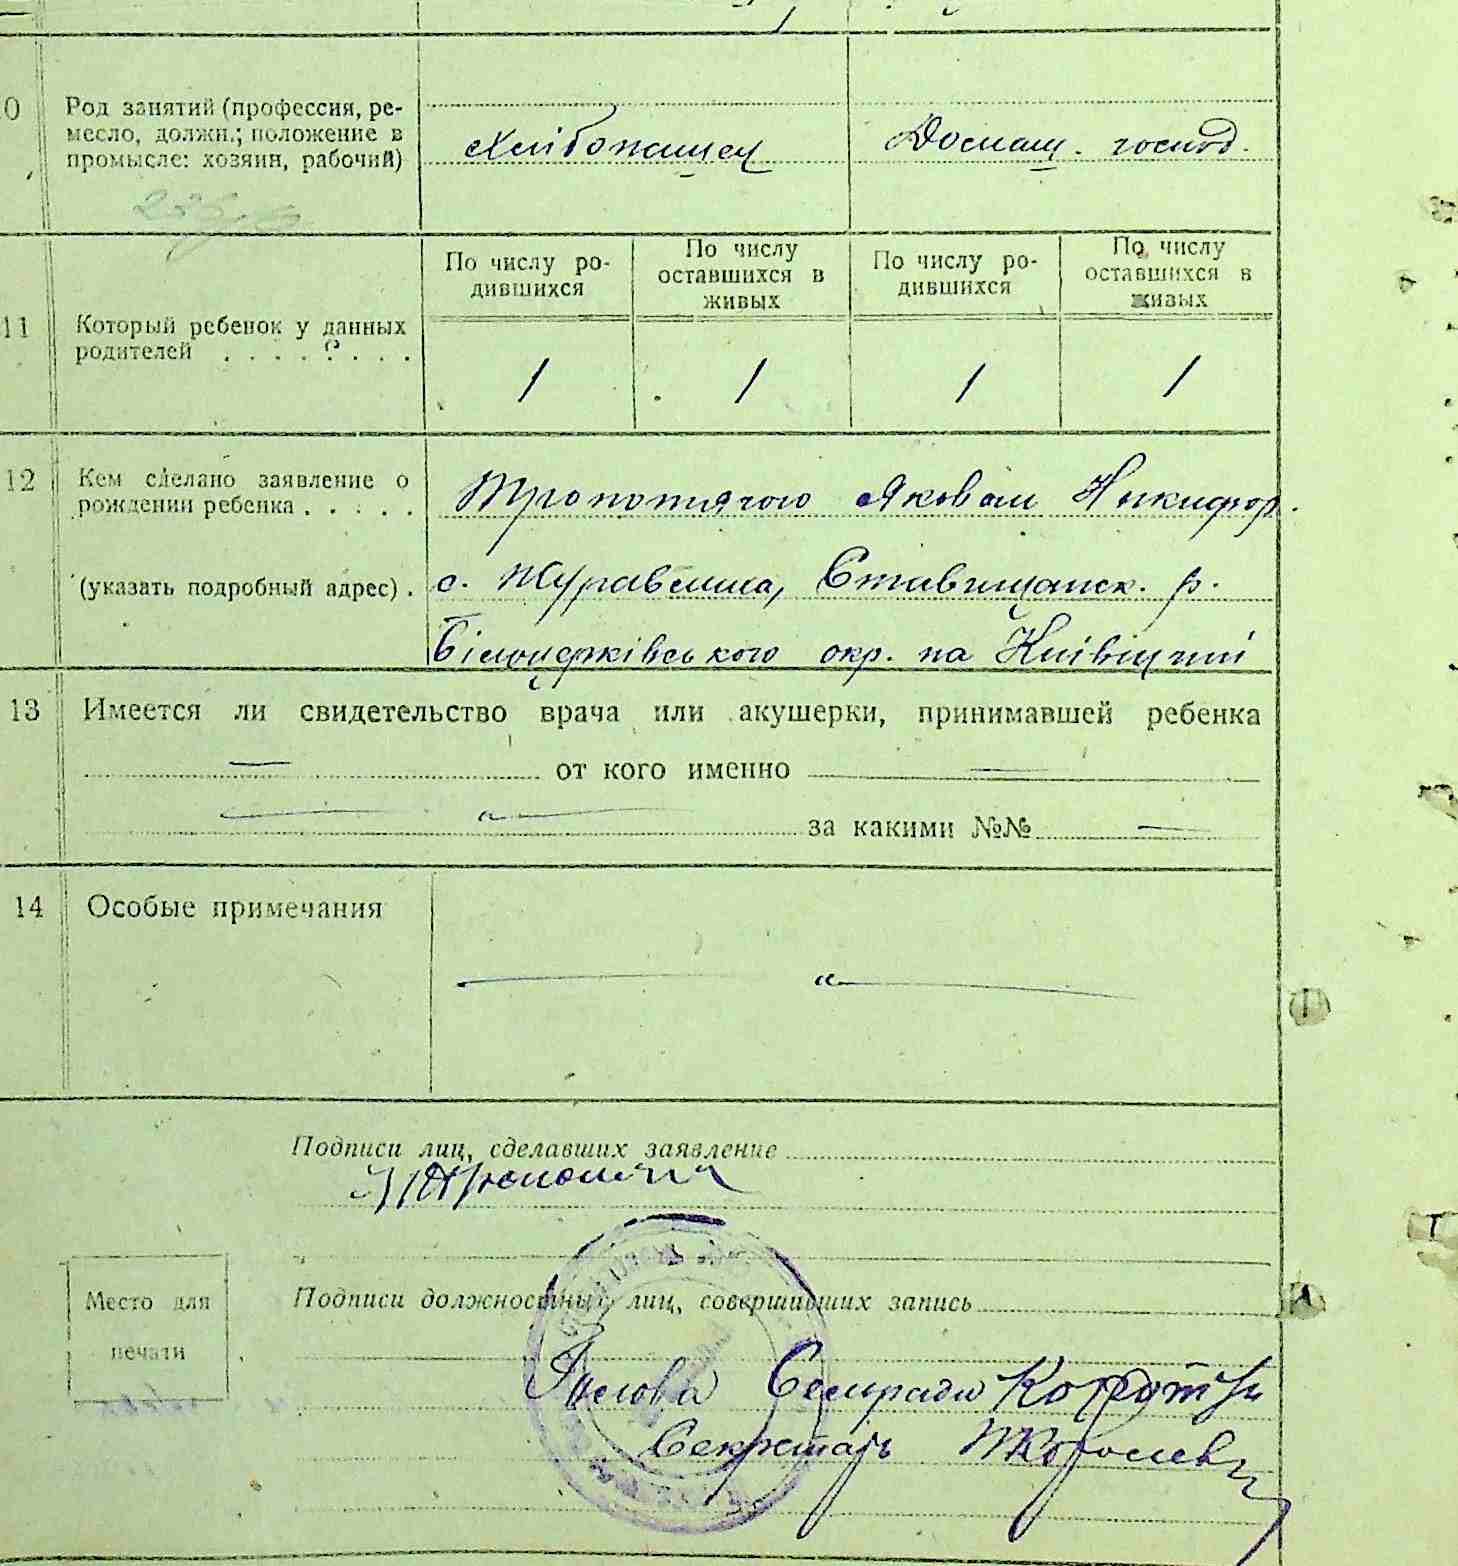 10 Род занятий (профессия, ре-
месло, должн.; положение в
промысле: хозяин, рабочий)
Хлібопашец Домаш. господ.
11 Который ребенок у данных
родителей . . . . . . . .
По числу ро-
дившихся
По числу
оставшихся в
живых
По числу ро-
дившихся
По числу
оставшихся в
живых
1 1 1 1
12 Кем сделано заявление о
рождении ребенка . . . . .
(указать подробный адрес) .
Тропотячого Яковом Никифор.
с. Журавлиха, Ставищанск. р.
Білоцерківського окр. на Київщині
13 Имеется ли свидетельство врача или акушерки, принимавшей ребенка
— от кого именно —
— „ — за какими №№ —
14 Особые примечания
— „ —
Подписи лиц, сделавших заявление
Подписи должностных лиц, совершивших запись
Место для
печати
Голова Сельради
Секретарь